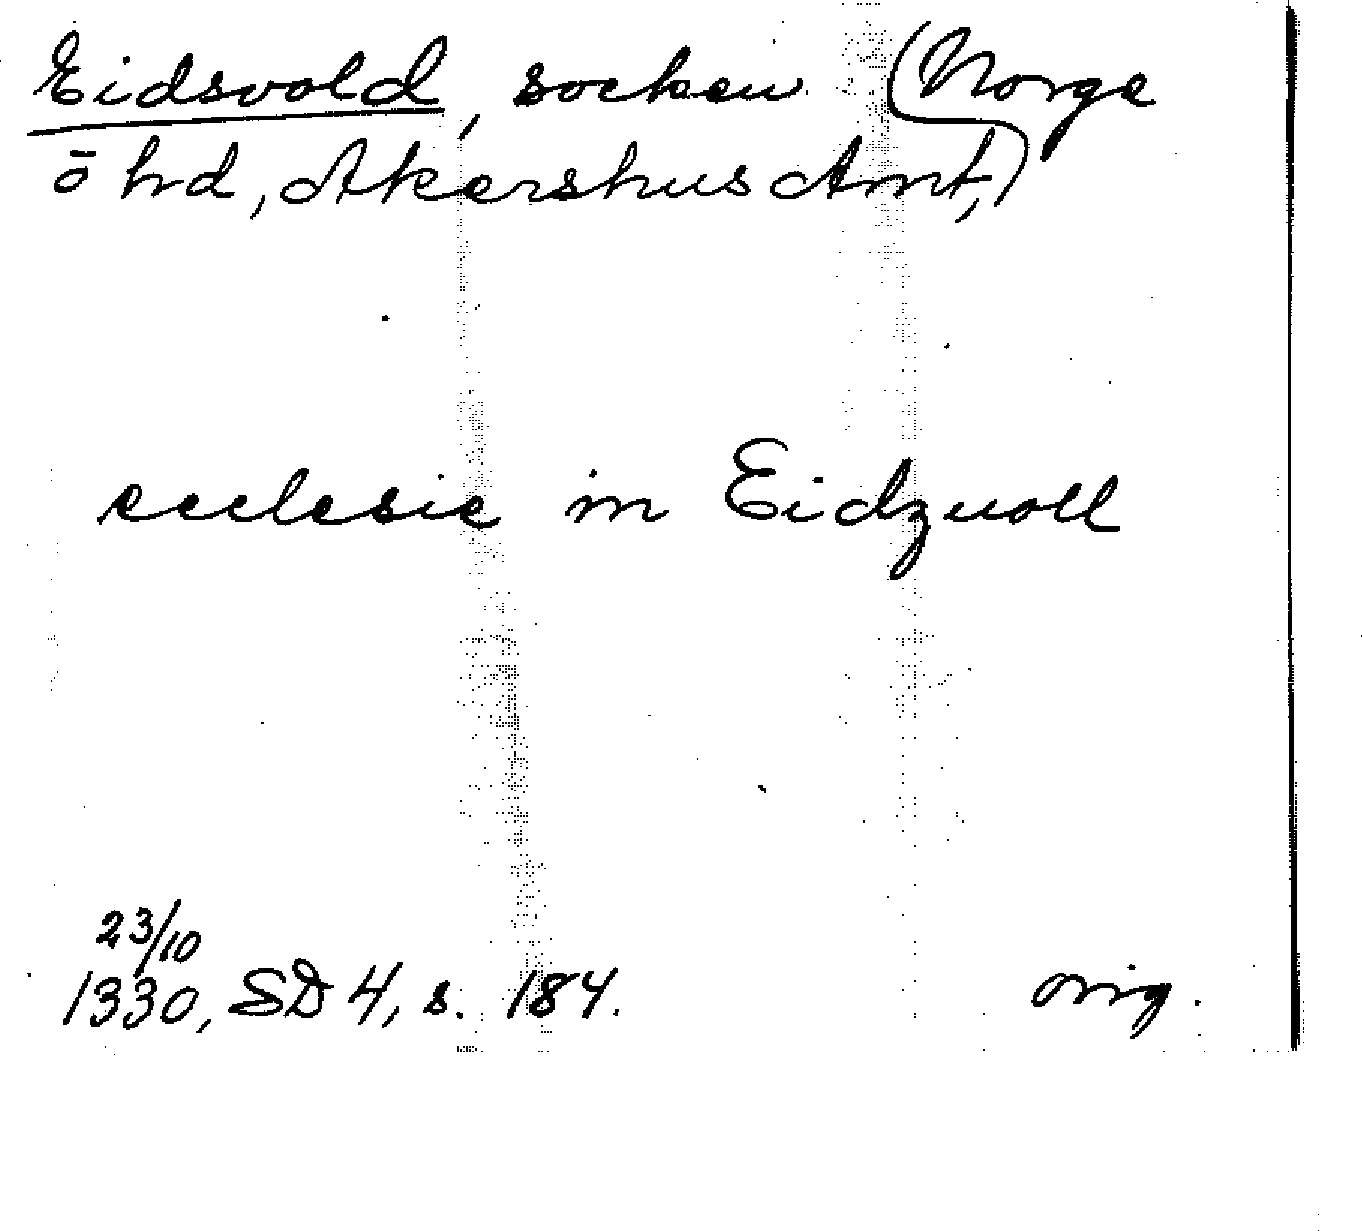 Eidsvold, socken (Norge
ō hd, Akershus Amt,)
ecclesie in Eidzuoll
23/10
1330, SD 4, s. 184.
orig.